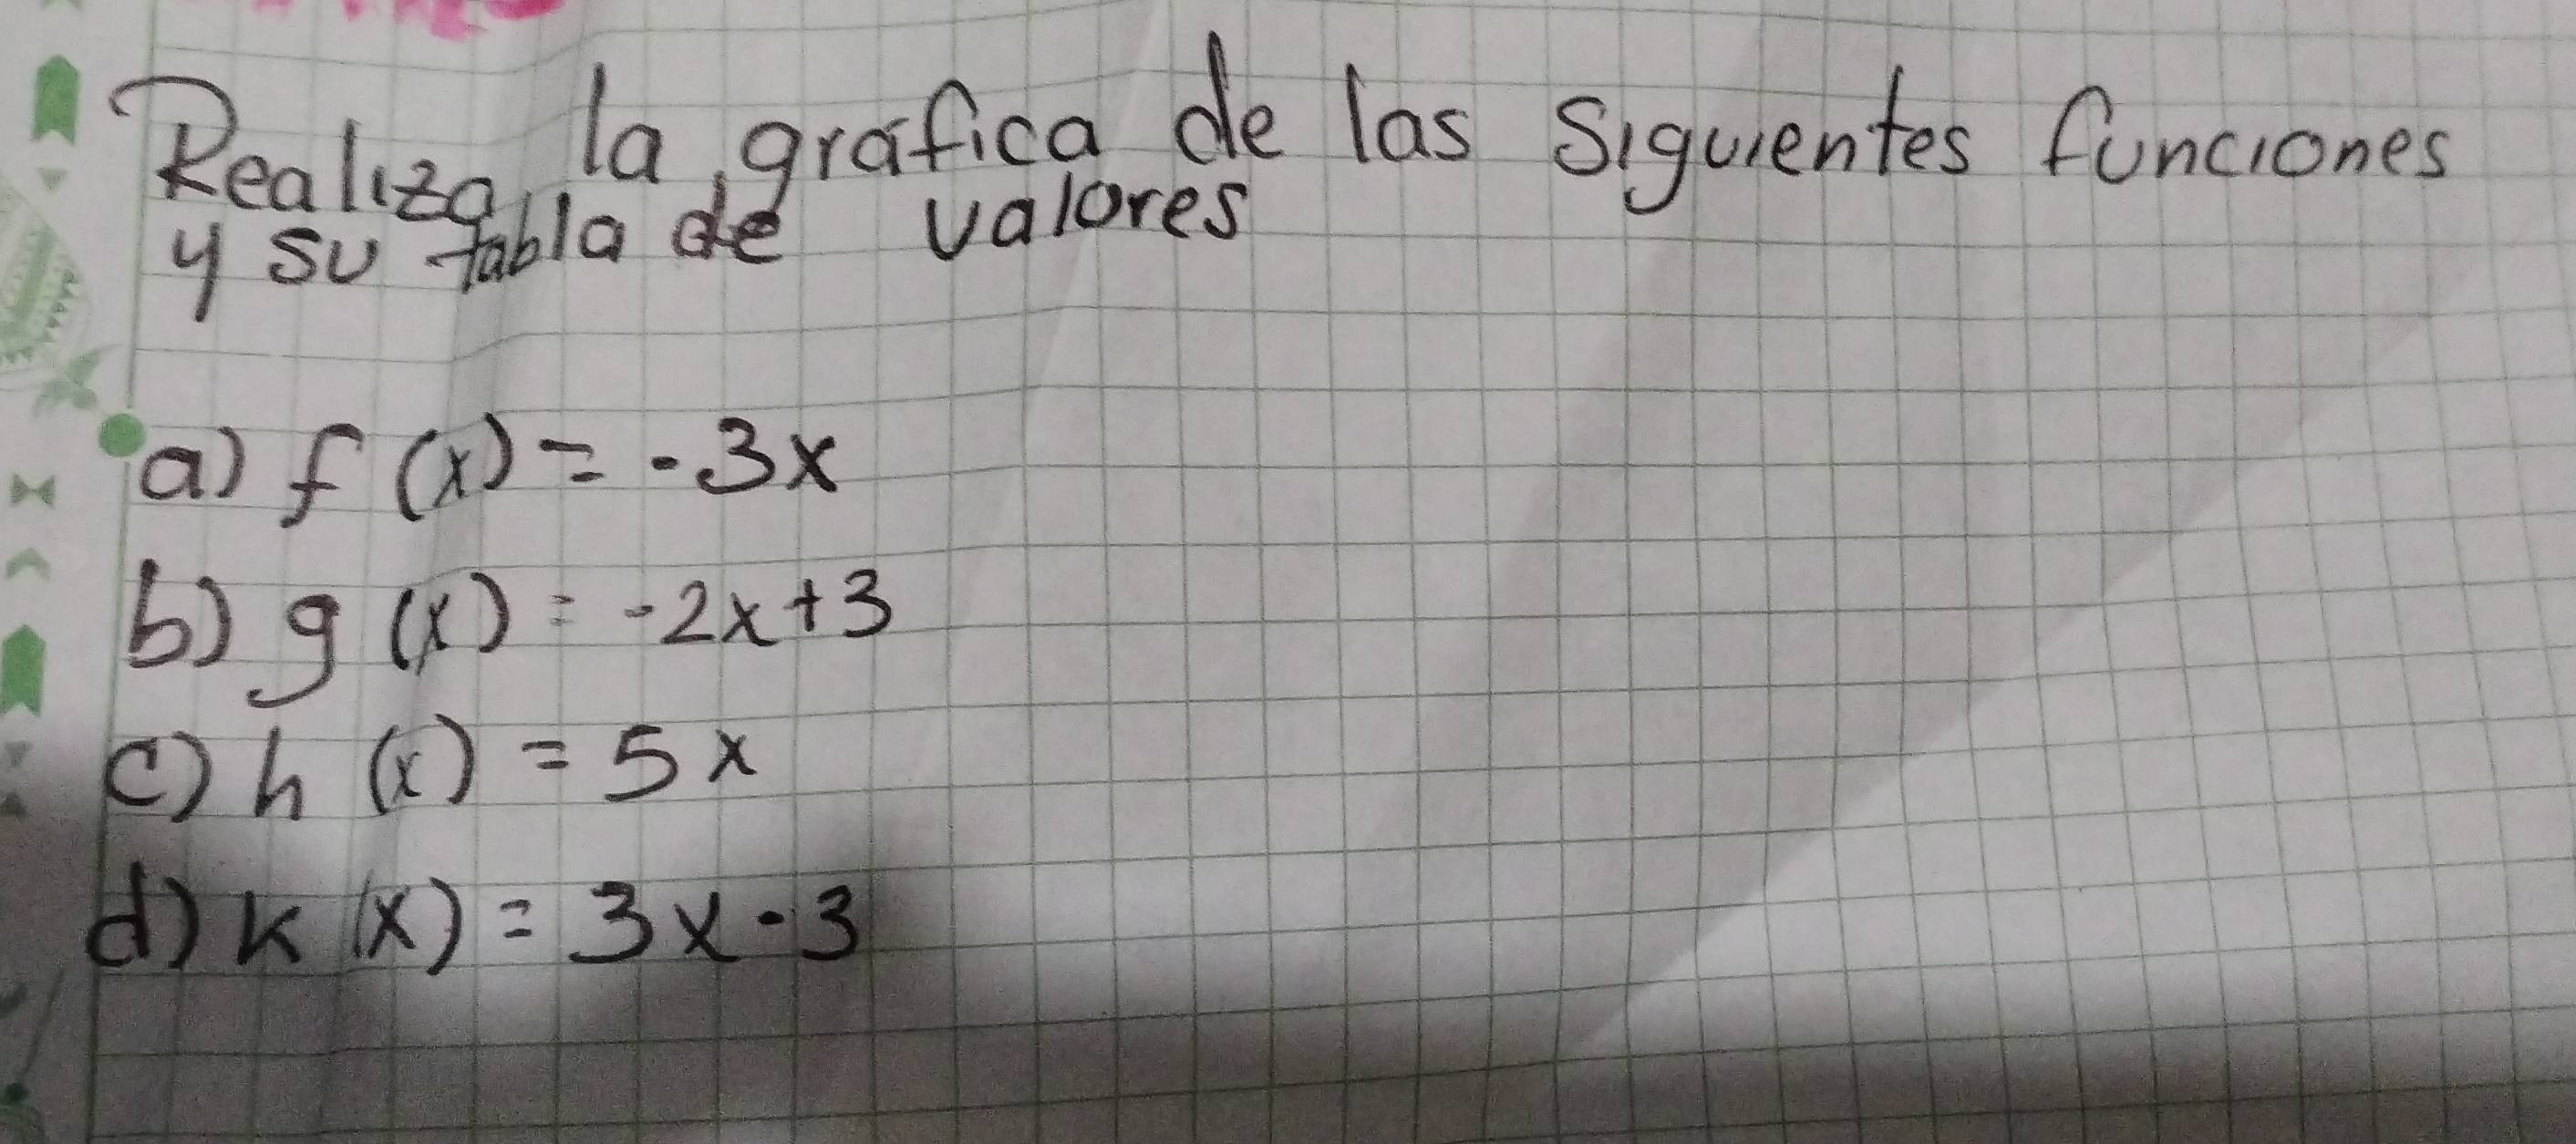 Realiza la gráfica de las siguientes funciones
y su tabla de valores
a) f (x) = -3x
b) g (x) = -2x+3
c) h (x) = 5x
d) k (x) = 3x-3